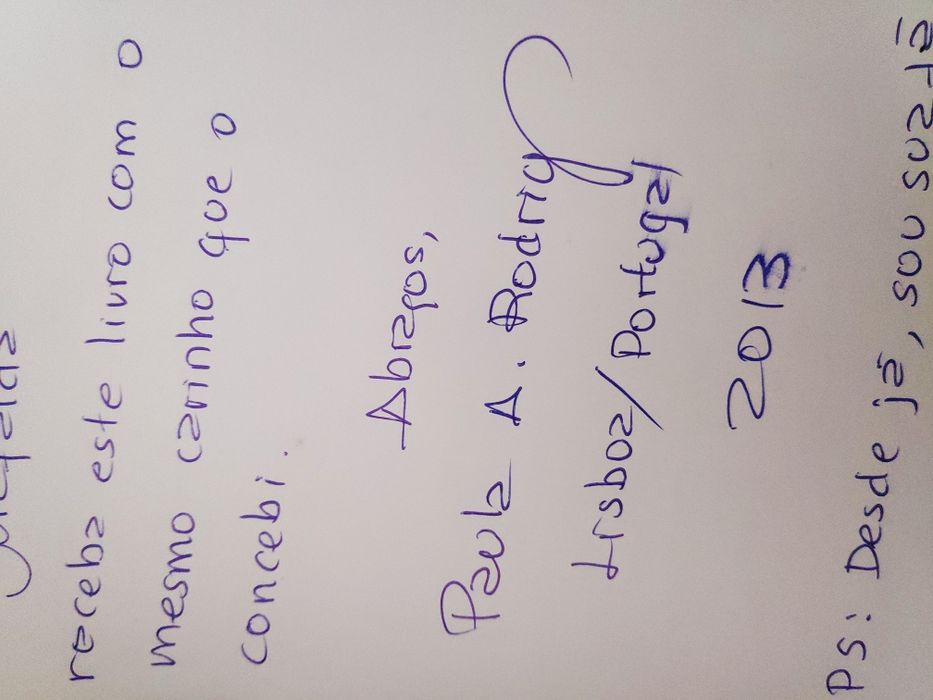 receba este livro com o
mesmo carinho que o
concebi.
Abraços,
Paula A. Rodrig
Lisboa/Portugal
2013
PS: Desde já, sou sua fã